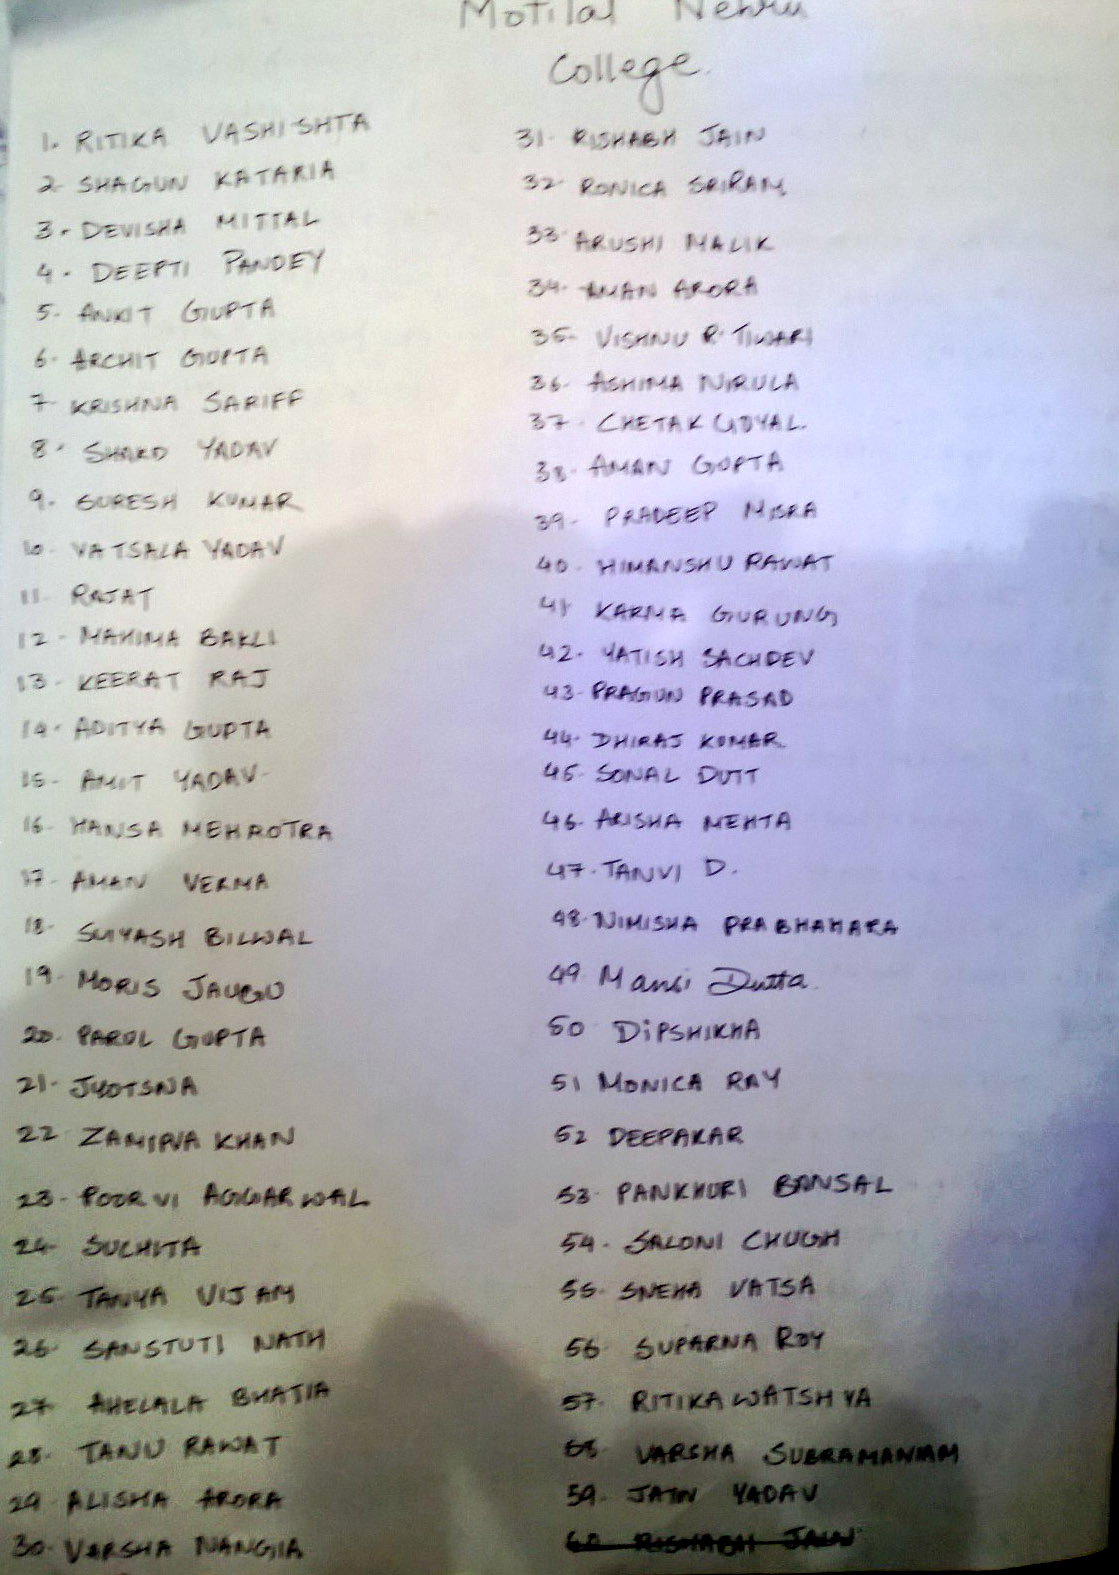 Motilal Nehru
College.
1. RITIKA VASHISHTA
2. SHAGUN KATARIA
3. DEVISHA MITTAL
4. DEEPTI PANDEY
5. ANKIT GUPTA
6. ARCHIT GUPTA
7. KRISHNA SARIFF
8. YADAV
9. SURESH KUMAR
10. VATSALA YADAV
11. RAJAT
12. MAHIMA BAKLI
13. KEERAT RAJ
14. ADITYA GUPTA
15. AMIT YADAV
16. HANSA MEHROTRA
17. AMAN VERMA
18. SUIYASH BILWAL
19. MORIS
20. PARUL GUPTA
21. JYOTSNA
22 KHAN
23. POORVI AGGARWAL
24. SUCHITA
25. TANYA VIJAM
26. SANSTUTI NATH
27 AHELALA BHATIA
28. TANU RAWAT
29 ALISHA ARORA
30. VARSHA NANGIA
31. RISHABH JAIN
32. RONICA SRIRAM
33. ARUSHI MALIK
34. AMAN ARORA
35. VISHNU R. TIWARI
36. ASHIMA NIRULA
37. CHETAK GOYAL.
38. AMAN GUPTA
39. PRADEEP MISRA
40. HIMANSHU RAWAT
41 KARMA GURUNG
42. YATISH SACHDEV
43. PRAGUN PRASAD
44. DHIRAJ KUMAR
45. SONAL DUTT
46. ARISHA MEHTA
47. TANVI D.
48. NIMISHA PRABHAHARA
49 Mansi Dutta
50 DiPSHIKHA
51 MONICA RAY
52 DEEPAKAR
53. PANKHURI BANSAL
54. SALONI CHUGH
55. SNEHA VATSA
56 SUPARNA ROY
57. RITIKA WATSHYA
58. VARSHA SUBRAMANIAM
59. JATIN YADAV
60 RISHABH JAIN